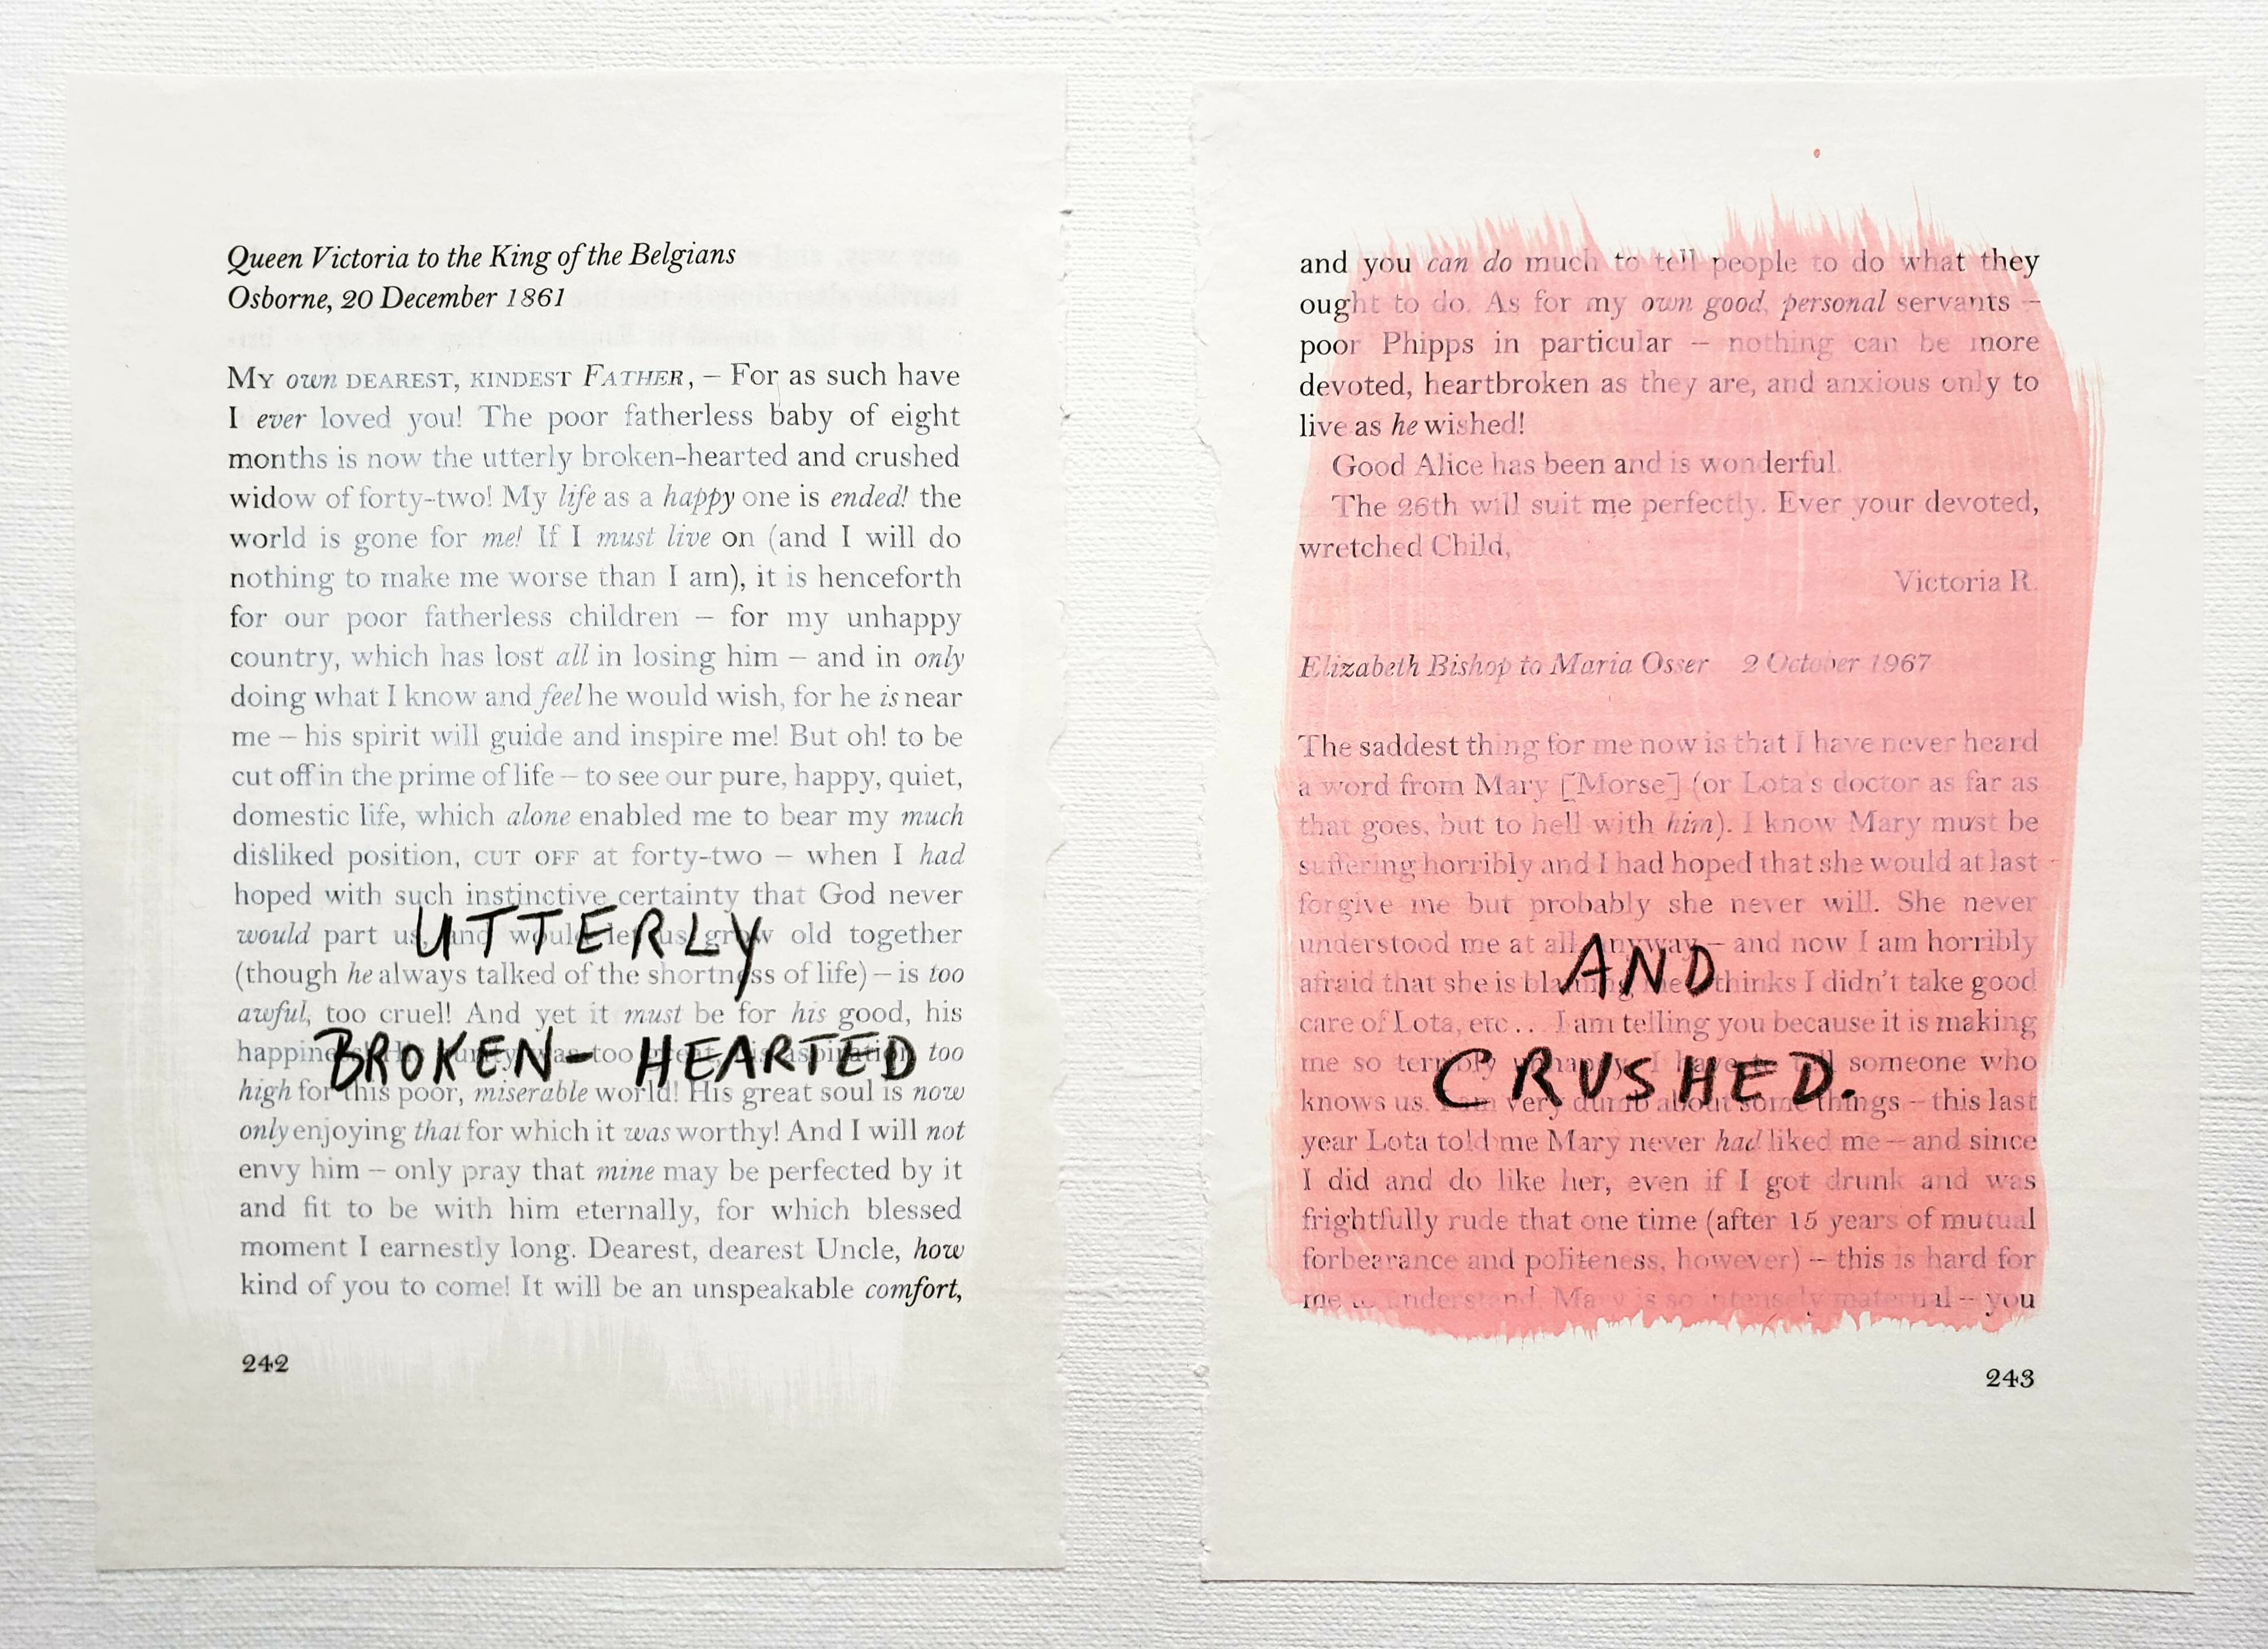 Queen Victoria to the King of the Belgians
Osborne, 20 December 1861
MY own DEAREST, KINDEST FATHER, – For as such have
I ever loved you! The poor fatherless baby of eight
months is now the utterly broken-hearted and crushed
widow of forty-two! My life as a happy one is ended! the
world is gone for me! If I must live on (and I will do
nothing to make me worse than I am), it is henceforth
for our poor fatherless children – for my unhappy
country, which has lost all in losing him – and in only
doing what I know and feel he would wish, for he is near
me – his spirit will guide and inspire me! But oh! to be
cut off in the prime of life – to see our pure, happy, quiet,
domestic life, which alone enabled me to bear my much
disliked position, CUT OFF at forty-two – when I had
hoped with such instinctive certainty that God never
would part us, and would let us grow old together
UTTERLY
(though he always talked of the shortness of life) – is too
awful, too cruel! And yet it must be for his good, his
happiness! His purity was too great, his aspiration too
BROKEN-HEARTED
high for this poor, miserable world! His great soul is now
only enjoying that for which it was worthy! And I will not
envy him – only pray that mine may be perfected by it
and fit to be with him eternally, for which blessed
moment I earnestly long. Dearest, dearest Uncle, how
kind of you to come! It will be an unspeakable comfort,
242
and you can do much to tell people to do what they
ought to do. As for my own good, personal servants –
poor Phipps in particular – nothing can be more
devoted, heartbroken as they are, and anxious only to
live as he wished!
Good Alice has been and is wonderful.
The 26th will suit me perfectly. Ever your devoted,
wretched Child,
Victoria R.
Elizabeth Bishop to Maria Osser 2 October 1967
The saddest thing for me now is that I have never heard
a word from Mary [Morse] (or Lota's doctor as far as
that goes, but to hell with him). I know Mary must be
suffering horribly and I had hoped that she would at last
forgive me but probably she never will. She never
understood me at all, anyway – and now I am horribly
AND
afraid that she is blaming me, thinks I didn't take good
care of Lota, etc... I am telling you because it is making
me so terribly unhappy, I have to tell someone who
CRUSHED.
knows us. I am very dumb about some things – this last
year Lota told me Mary never had liked me – and since
I did and do like her, even if I got drunk and was
frightfully rude that one time (after 15 years of mutual
forbearance and politeness, however) – this is hard for
me to understand. Mary is so intensely maternal – you
243